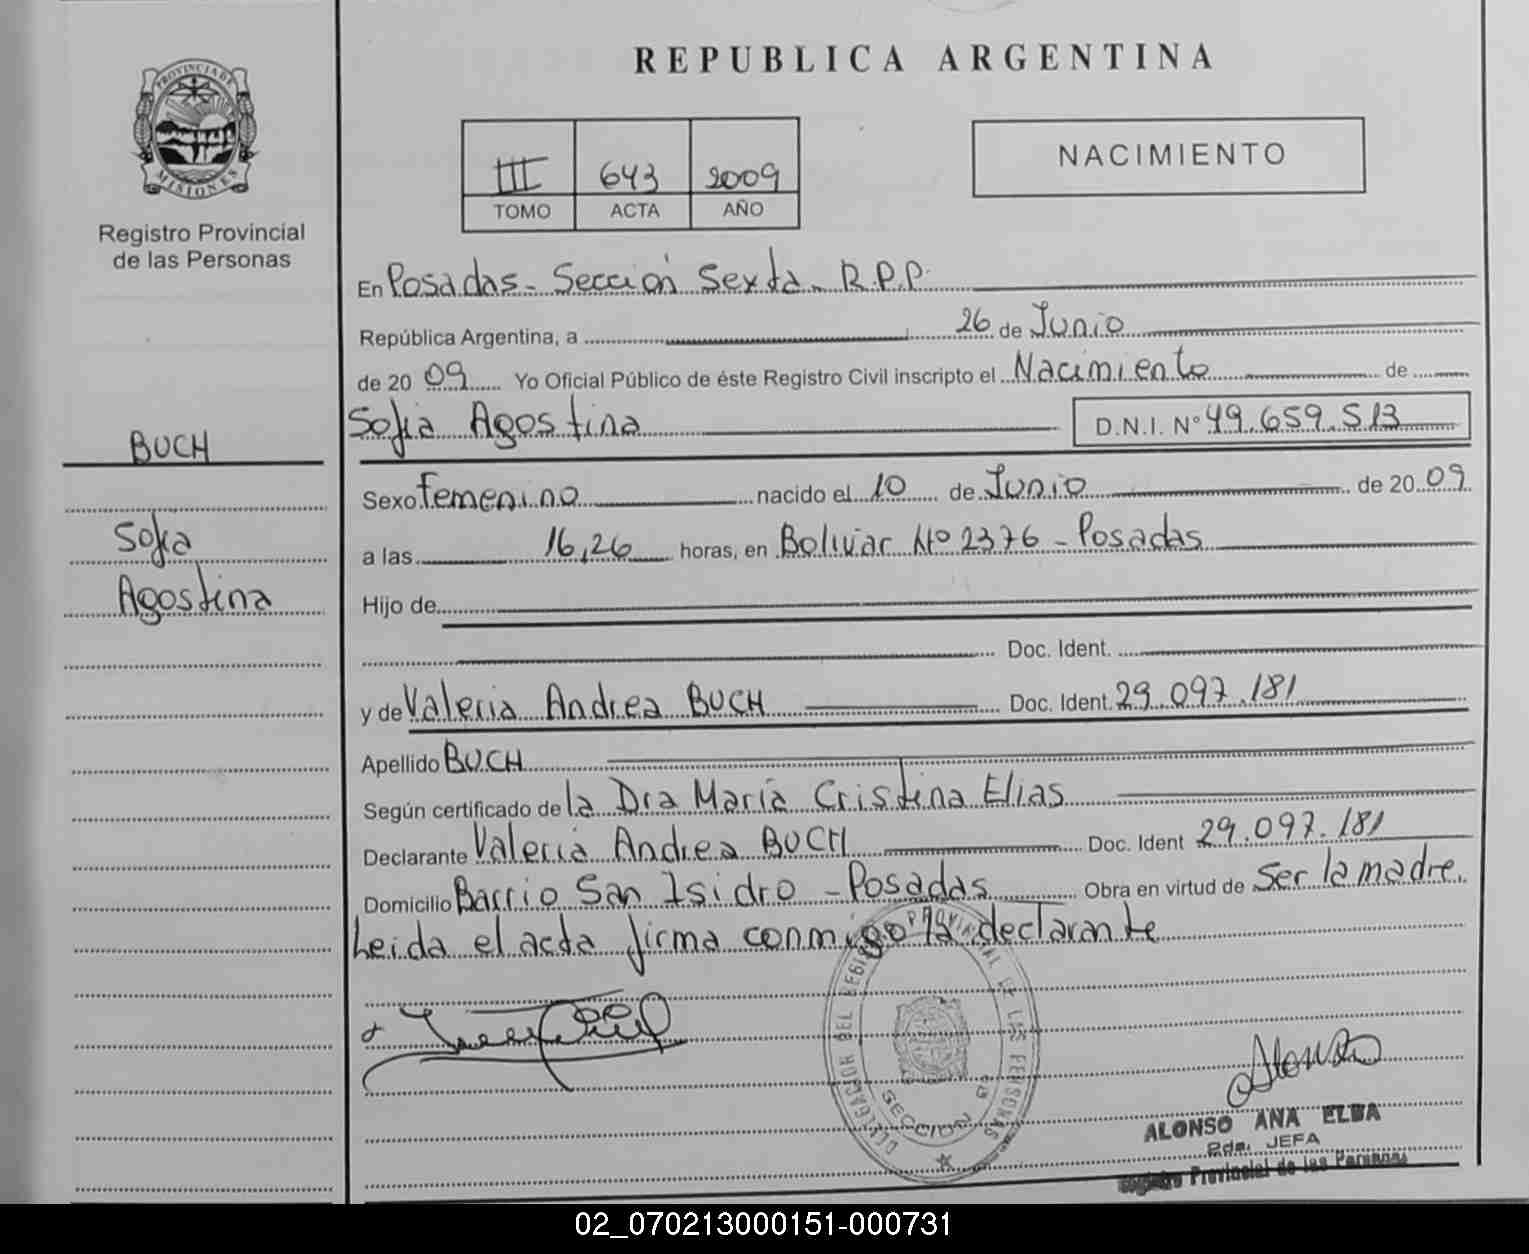 PROVINCIA DE
MISIONES
Registro Provincial
de las Personas
BUCH
Sofia
Agostina
REPUBLICA ARGENTINA
III 643 2009
TOMO ACTA AÑO
NACIMIENTO
En Posadas - Sección Sexta - R.P.P.
República Argentina, a 26 de Junio
de 20 09 Yo Oficial Público de éste Registro Civil inscripto el Nacimiento de
Sofia Agostina D.N.I. N° 49.659.513
Sexo Femenino nacido el 10 de Junio de 20 09
a las 16,26 horas, en Bolivar Nº 2376 - Posadas
Hijo de
Doc. Ident.
y de Valeria Andrea BUCH Doc. Ident. 29.097.181
Apellido BUCH
Según certificado de la Dra María Cristina Elias
Declarante Valeria Andrea BUCH Doc. Ident 29.097.181
Domicilio Barrio San Isidro - Posadas Obra en virtud de Ser la madre.
Leida el acta firma conmigo la declarante
Alonso
ALONSO ANA ELBA
2da. JEFA
Registro Provincial de las Personas
02_070213000151-000731